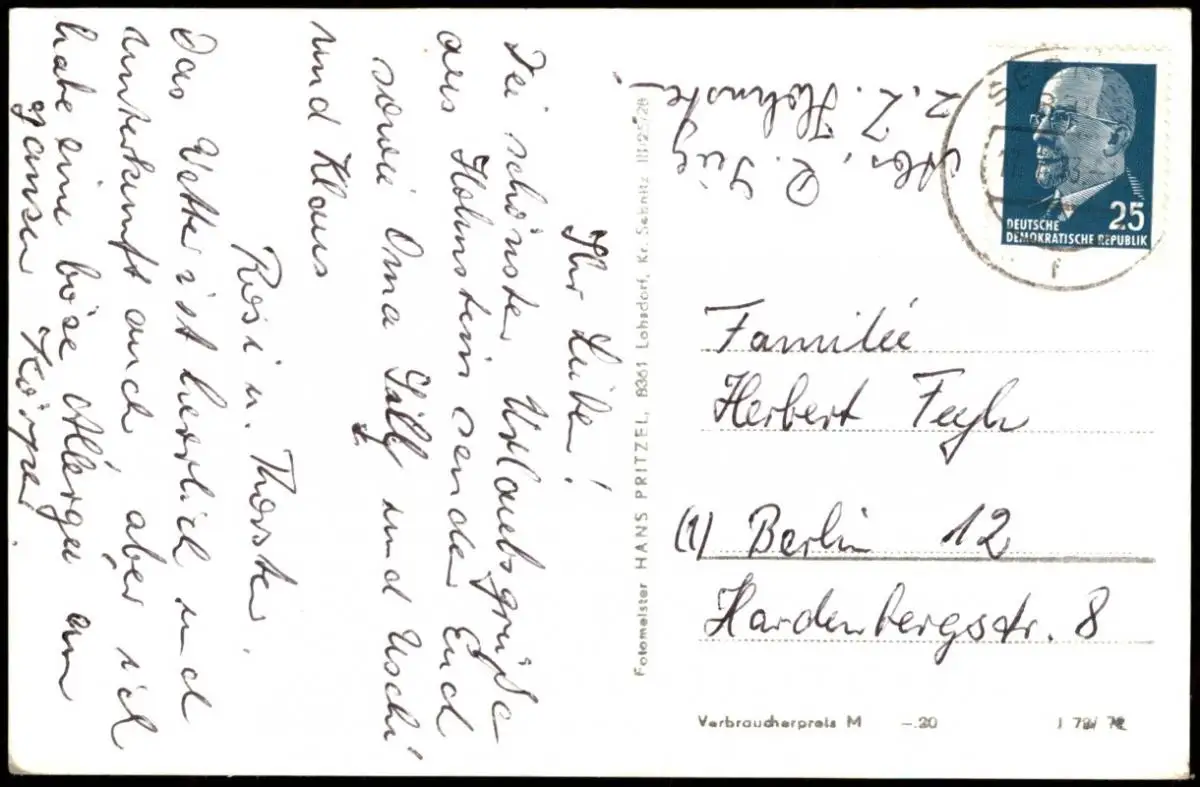 Ihr Lieben!
Die schönsten Urlaubsgrüße
aus Hohnstein sendet Euch
sowie Oma Sälf und Uschi
und Klaus
Rosi u. Thorsten.
Das Wetter ist herrlich und
Unterkunft auch aber ich
habe eine böse Allergie am
ganzen Körper
Abs.
z.Z. Hohnstein
Fotomeister HANS PRITZEL, 8361 Lohsdorf, Kr. Sebnitz
25
DEUTSCHE
DEMOKRATISCHE REPUBLIK
Familie
Herbert
(1) Berlin 12
Hardenbergstr. 8
Verbraucherpreis M -.20